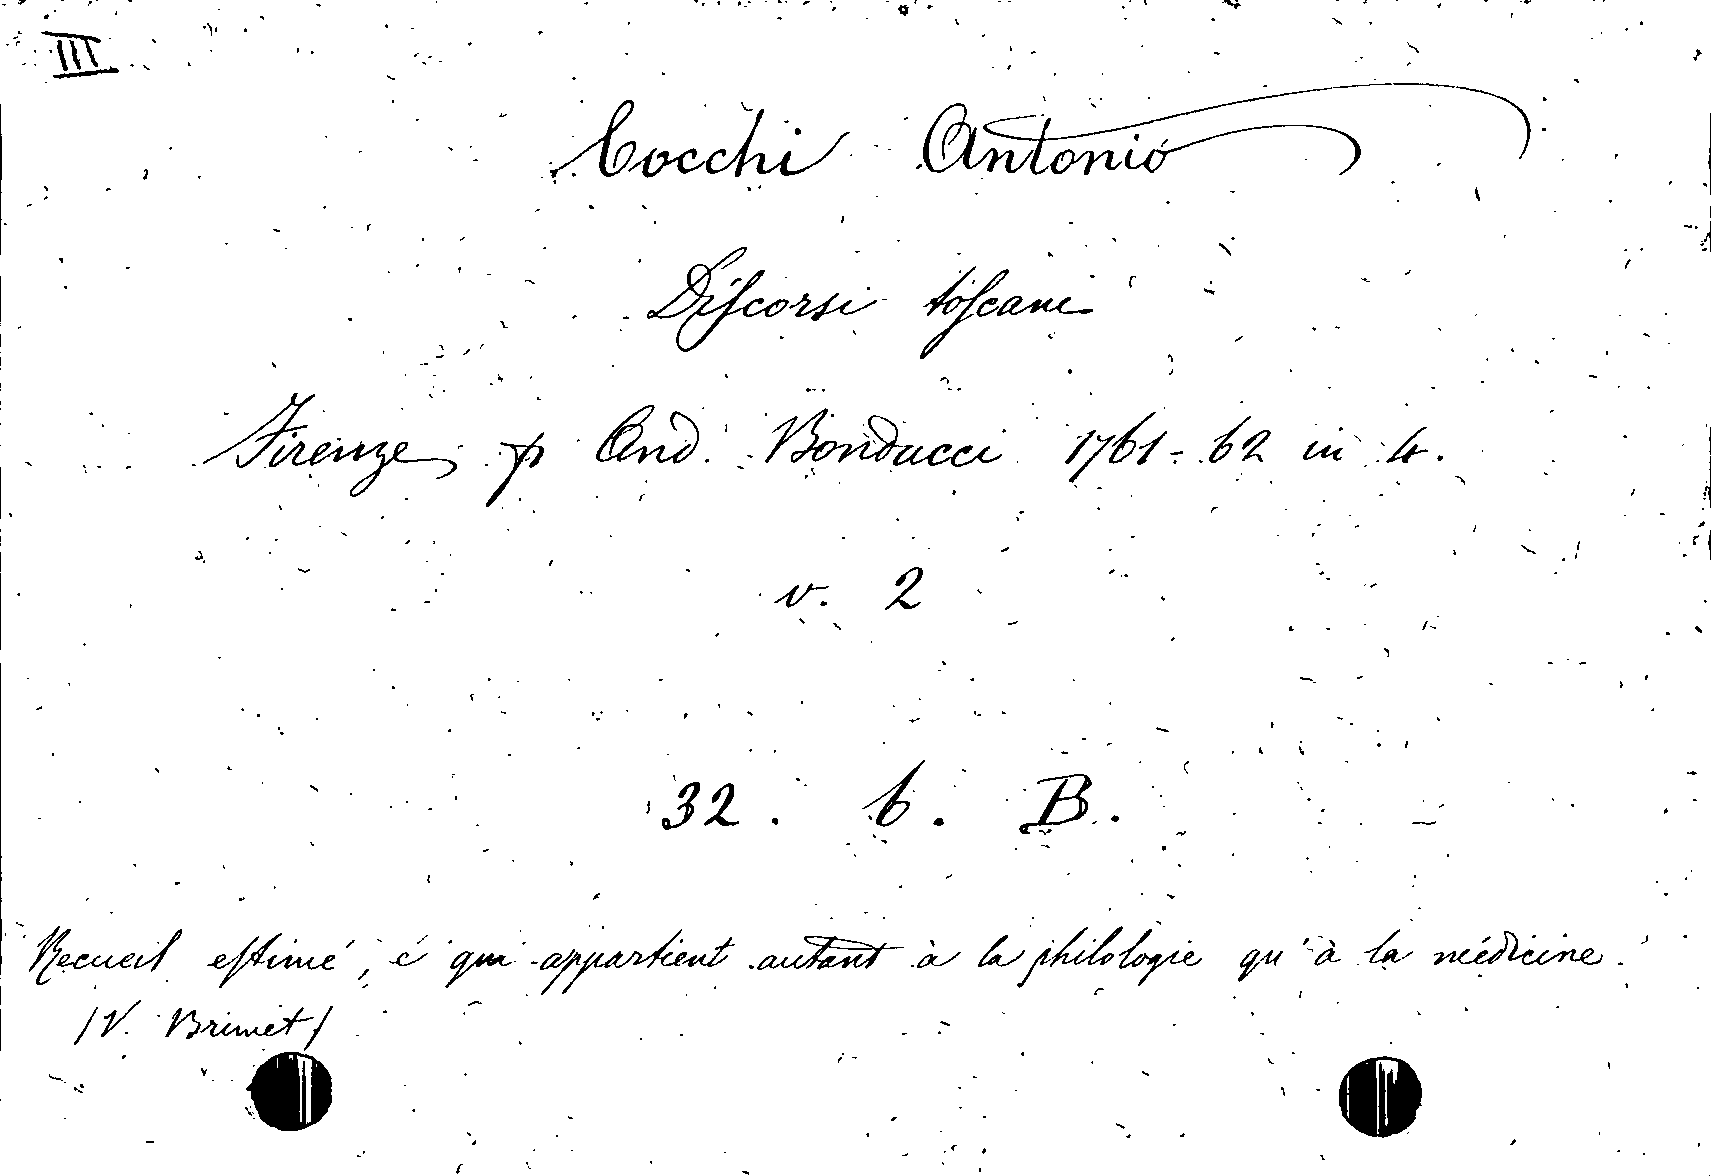 III
Cocchi Antonio
Diſcorsi toſcani
Firenze, p And. Bonducci 1761-62 in 4.
v. 2
32. 6. B.
Recueil eſtimé, é qui appartient autant à la philologie qu'à la médicine.
/V. Brunet/